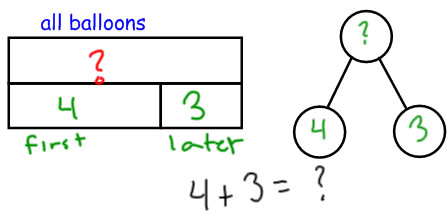 all balloons
?
4 3
first later
?
4 3
4 + 3 = ?